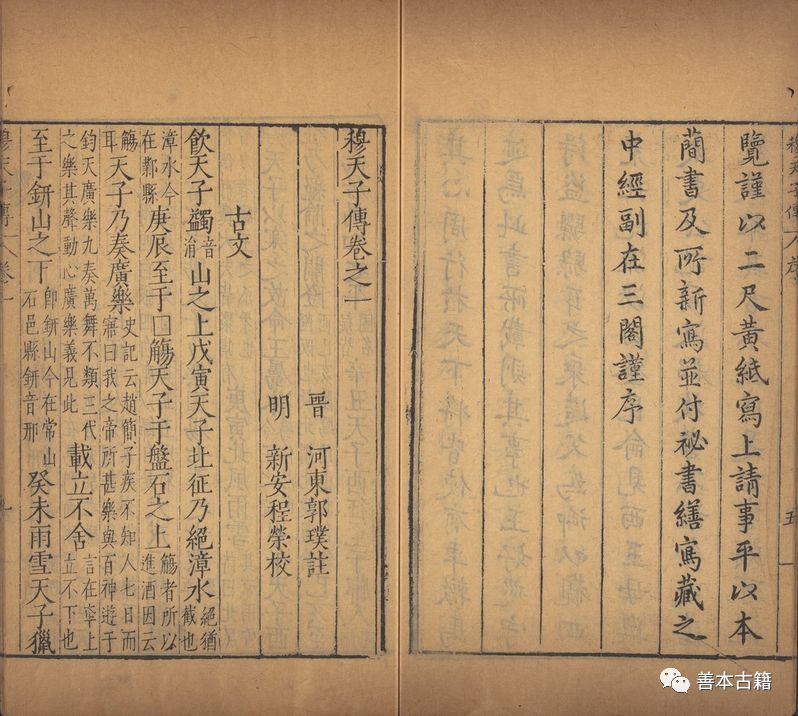 覽謹以二尺黃紙寫上請事平以本
蕳書及所新寫並付祕書繕寫藏之
中經副在三閣謹序
五
穆天子傳卷之一
晉 河東郭璞註
明 新安程榮校
古文
飲天子蠲音涓山之上戊寅天子北征乃絕漳水絕猶截也
漳水今在鄴縣庚辰至于□觴天子于盤石之上觴者所以進酒因云
觴耳天子乃奏廣樂史記云趙簡子疾不知人七日而寤曰我之帝所甚樂與百神遊于
鈞天廣樂九奏萬舞不類三代之樂其聲動心廣樂義見此載立不舍言在車上立不下也
至于鈃山之下即鈃山今在常山石邑縣鈃音邢癸未雨雪天子獵
善本古籍